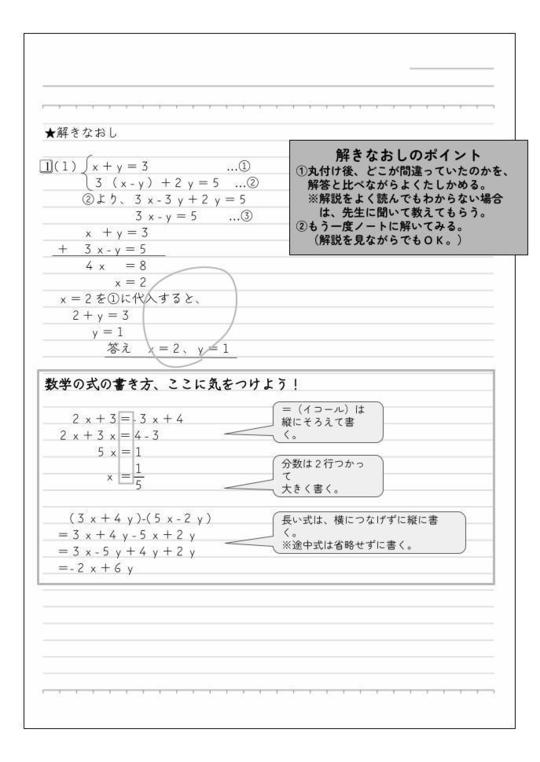 ★解きなおし
1(1) x+y=3 …①
3(x-y)+2y=5 …②
②より、3x-3y+2y=5
3x-y=5 …③
x+y=3
+ 3x-y=5
4x =8
x=2
x=2を①に代入すると、
2+y=3
y=1
答え x=2、y=1
解きなおしのポイント
①丸付け後、どこが間違っていたのかを、
解答と比べながらよくたしかめる。
※解説をよく読んでもわからない場合
は、先生に聞いて教えてもらう。
②もう一度ノートに解いてみる。
(解説を見ながらでもOK。)
数学の式の書き方、ここに気をつけよう!
2x+3=-3x+4
2x+3x=4-3
5x=1
x=1/5
=(イコール)は
縦にそろえて書
く。
分数は2行つかっ
て
大きく書く。
(3x+4y)-(5x-2y)
=3x+4y-5x+2y
=3x-5y+4y+2y
=-2x+6y
長い式は、横につなげずに縦に書
く。
※途中式は省略せずに書く。